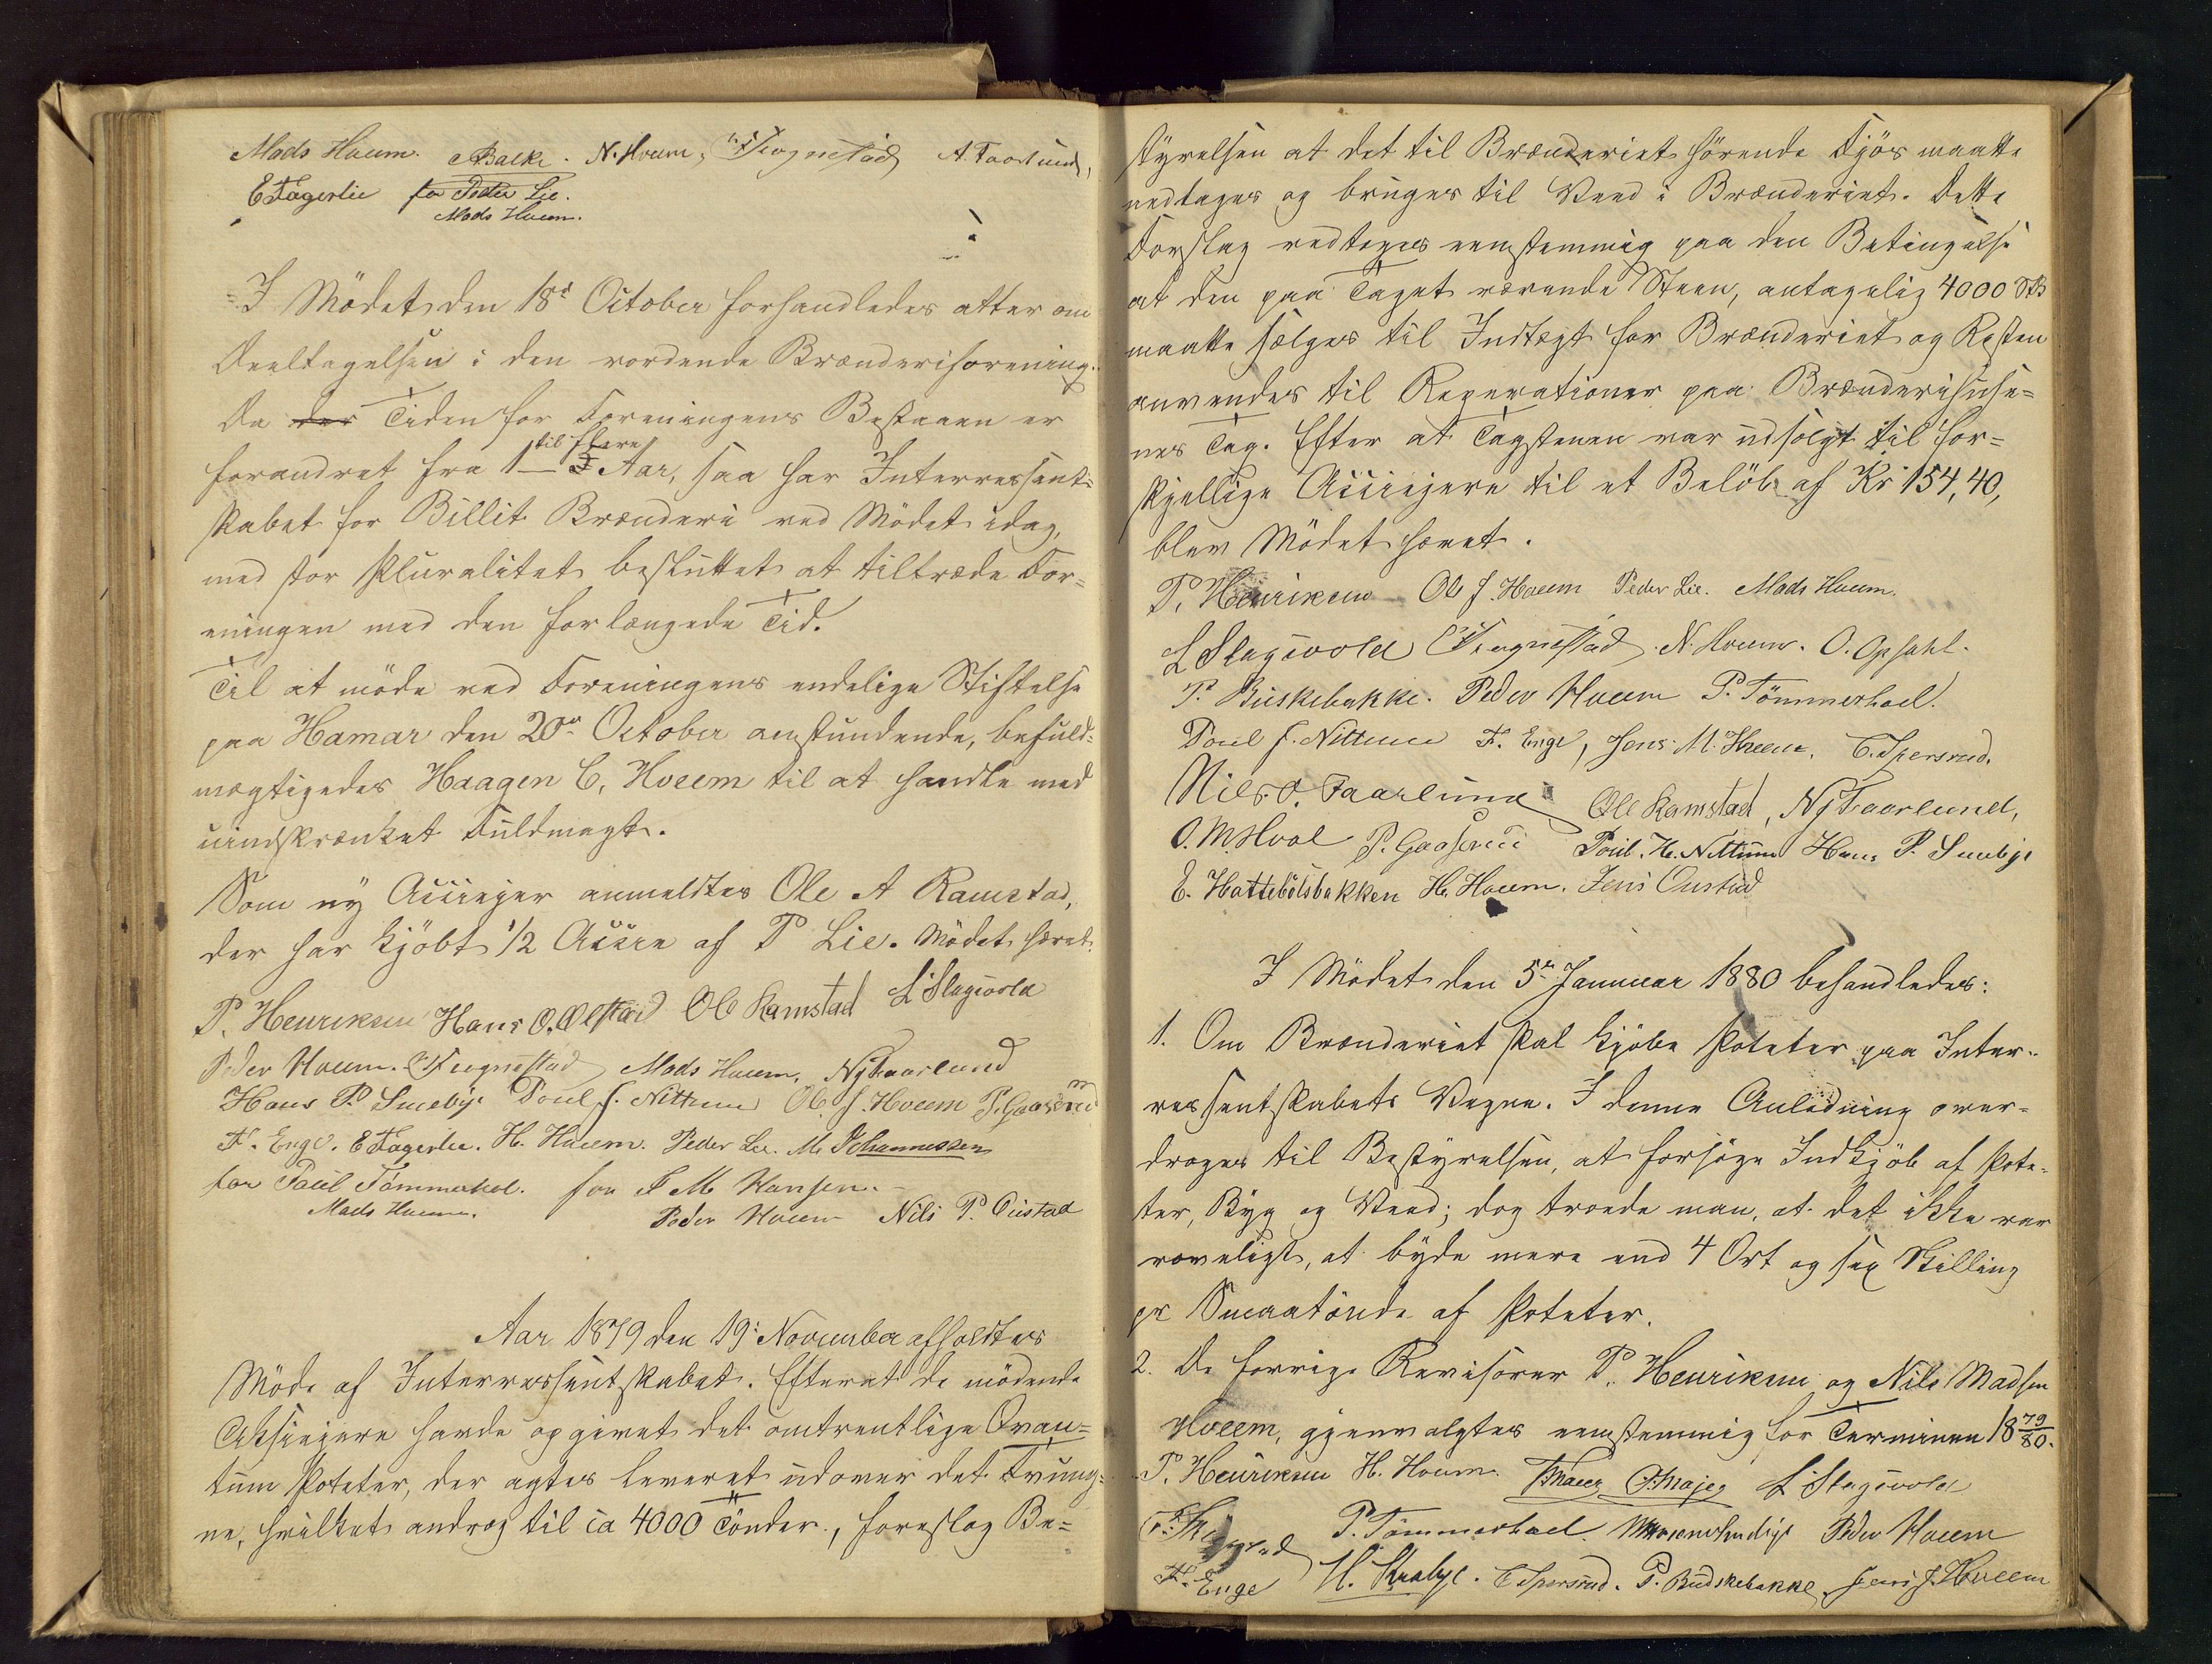 Mads Hveem. ABalke. N. Hveem, Tiognestad A. Faarlund,
E Fagerlie for Peder Lie.
Mads Hveem.
I Mödet den 18d October forhandledes atter om
Deeltagelsen i den vordende Brænderiforening.
Da der Tiden for Foreningens Bestaaen er
forandret fra 1 til flere Aar, saa har Interressent-
skabet for Billit Brænderi ved Mödet idag,
med stor Pluralitet besluttet at tiltræde For-
eningen med den forlængede Tid.
Til at möde ved Foreningens endelige Stiftelse
paa Hamar den 20de October anstundende, befuld-
mægtigedes Haagen C, Hveem til at handle med
uindskrænket Fuldmagt.
Som ny Actieejer anmeldtes Ole A Ramstad,
der har kjöbt 1/2 Actie af P Lie. Mödet hævet.
P. Henriksen Hans O. Olstad Ole Ramstad L Slagsvold
Peder Hveem. Tiognestad Mads Hveem, Nj Faarlund
Hans P. Smebye Poul J. Nettum Ole J. Hveem P. Gaaserud
F. Enge. E Fagerlie. H. Hveem. Peder Lie. M. Johannessen
for Paul Tömmerhol. for J M Hansen.
Mads Hveem. Peder Hveem Nils P. Oustad
Aar 1879 den 19de November afholdtes
Möde af Interressentskabet. Efterat de mödende
Aktieejere havde opgivet det omtrentlige Qvan-
tum Poteter, der agtes leveret udover det Tvung-
ne, hvilket androg til ca 4000 Tönder, foreslog Be-
styrelsen at det til Brænderiet hörende Fjös maatte
nedtages og bruges til Veed i Brænderiet. Dette
Forslag vedtoges eenstemmig paa den Betingelse
at den paa Taget værende Steen, antagelig 4000 Stk
maatte sælges til Indtægt for Brænderiet og Resten
anvendes til Reparationer paa Brænderihuse-
nes Tag. Efter at Tagstenen var udsolgt til for-
skjellige Actieejere til et Belöb af Kr 154,40,
blev Mödet hævet.
P. Henriksen Ole J. Hveem Peder Lie. Mads Hveem.
L Slagsvold Tiognestad. N. Hveem. O. Opsahl.
P. Buskebakke. Peder Hveem P. Tömmerhoel.
Poul J. Nettum F. Enge, Jens M. Hveem. C. Spersrud.
Nils. O. Faarlund Ole Ramstad, Nj Faarlund,
O. M. Hoel P. Gaaserud Poul. H. Nettum Hans P. Smebye
E. Hattebölsbakken H. Hveem. Jens Oustad
I Mödet den 5te Januar 1880 behandledes:
1. Om Brænderiet skal kjöbe Poteter paa Inter-
ressentskabets Vegne. I denne Anledning over-
droges til Bestyrelsen, at forsöge Indkjöb af Pote-
ter, Byg og Veed; dog troede man, at det ikke var
raadeligt, at byde mere end 4 Ort og sex Skilling
pr Smaatönde af Poteter.
2. De forrige Revisorer P. Henriksen og Nils Madsen
Hveem, gjenvalgtes eenstemmig for Terminen 18 79/80.
P. Henriksen H. Hveem. L Slagsvold
P. Tömmerhoel Peder Hveem
F. Enge H. Kraby. C Spersrud. P. Budskebakke, Jens J. Hveem